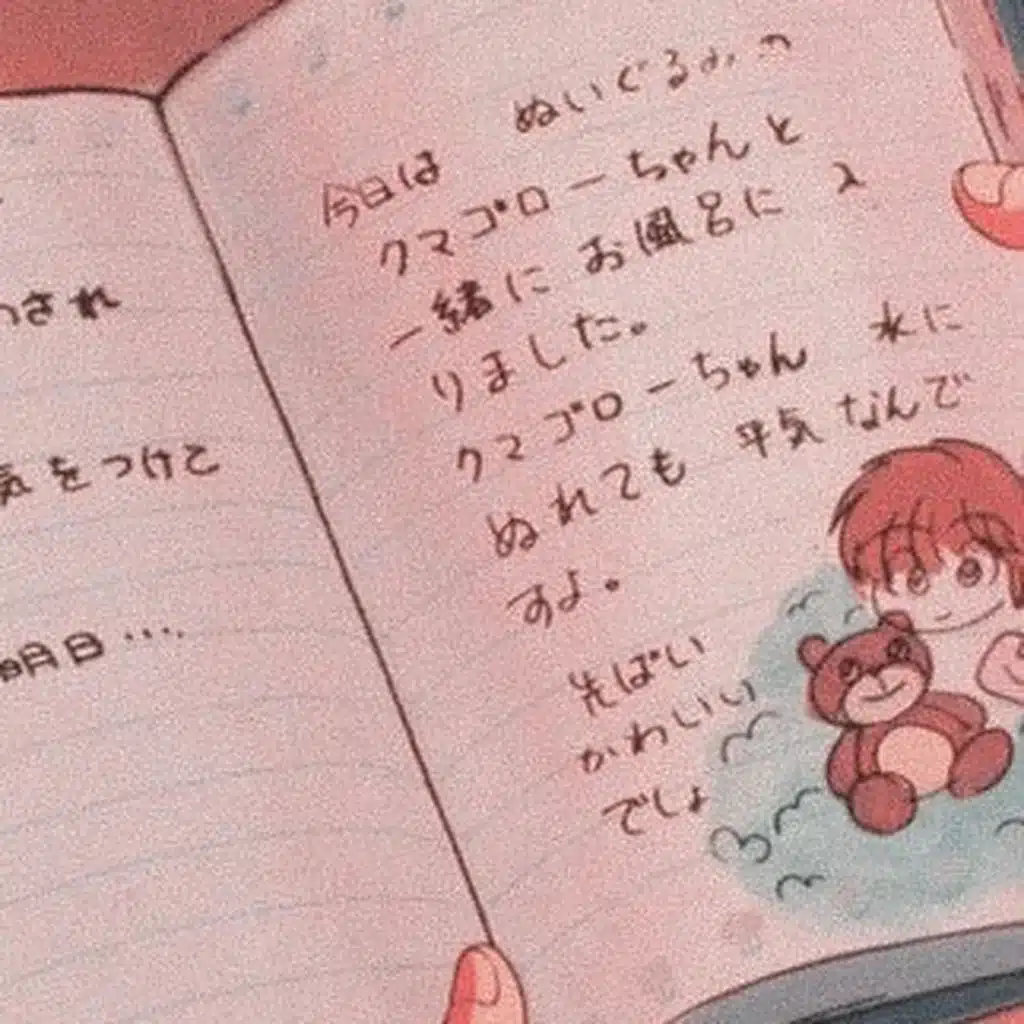 され
気をつけて
明日….
今日は ぬいぐるみの
クマゴローちゃんと
一緒にお風呂に入
りました。
クマゴローちゃん 水に
ぬれても平気なんで
すよ。
先ぱい
かわいい
でしょ